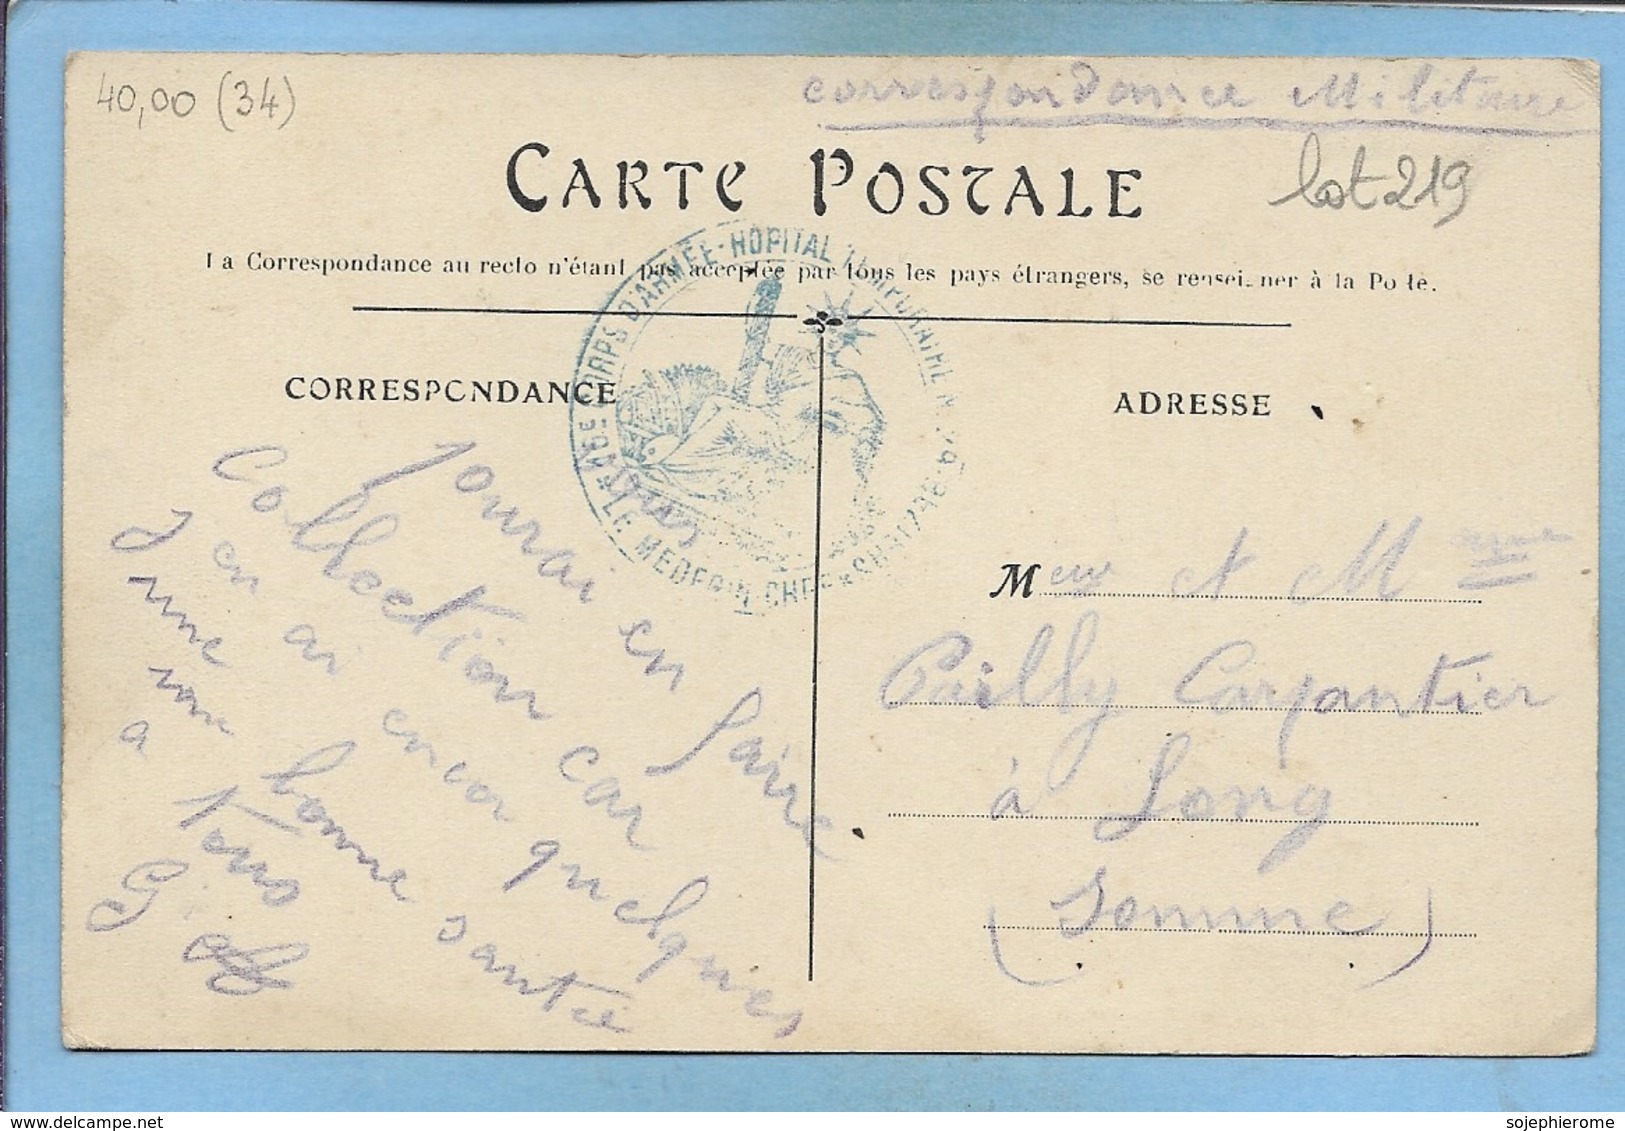 40,00 (34)
correspondance Militaire
CARTE POSTALE
lot 219
La Correspondance au recto n'étant pas acceptée par tous les pays étrangers, se renseigner à la Poste.
CORRESPONDANCE
ADRESSE
CORPS D'ARMÉE - HOPITAL TEMPORAIRE N°
LE MEDECIN CHEF
vous
pourai en faire
collection car
J en ai encor quelques
une bonne santée
a tous
G.
Meur et Mme
Pailly Carpantier
à Long
(Somme)
sojephierome